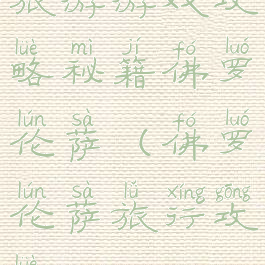 旅游游戏攻
lüè mì jí fó luó
略秘籍佛罗
lún sà fó luó
伦萨（佛罗
lún sà lǚ xíng gōng
伦萨旅行攻
lüè